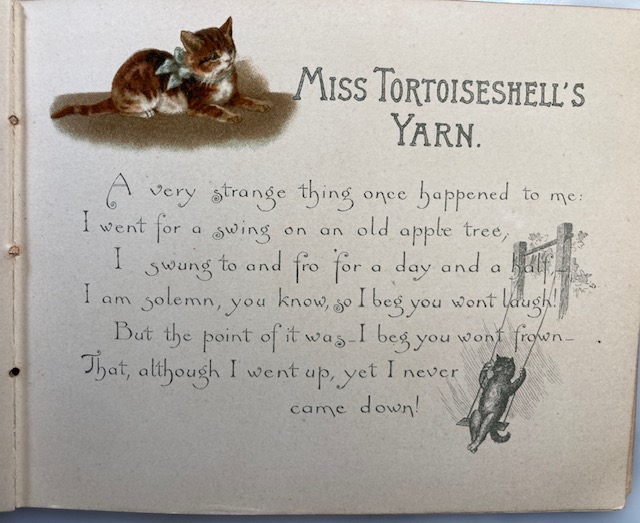 MISS TORTOISESHELL'S
YARN.
A very strange thing once happened to me:
I went for a swing on an old apple tree,
I swung to and fro for a day and a half—
I am solemn, you know, so I beg you wont laugh!
But the point of it was—I beg you wont frown—
That, although I went up, yet I never
came down!